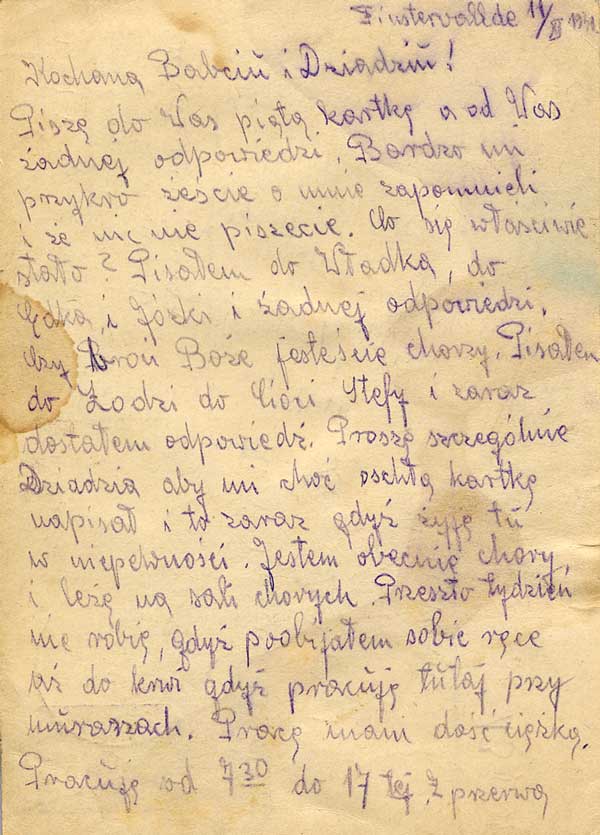 Finstervallde 11/II 1941.
Kochana Babciu i Dziadziu!
Piszę do Was piątą kartkę a od Was
żadnej odpowiedzi. Bardzo mi
przykro żeście o mnie zapomnieli
i że nic nie piszecie. Co się właściwie
stało? Pisałem do Władka, do
Edka, i Józki i żadnej odpowiedzi.
Czy broń Boże jesteście chorzy. Pisałem
do Łodzi do Cioci Stefy i zaraz
dostałem odpowiedź. Proszę szczególnie
Dziadzia aby mi choć oschłą kartkę
napisał i to zaraz gdyż żyję tu
w niepewności. Jestem obecnie chory
i leżę na sali chorych. Przeszło tydzień
nie robię, gdyż poobijałem sobie ręce
aż do krwi gdyż pracuję tutaj przy
murarzach. Pracę mam dość ciężką.
Pracuję od 7 30 do 17 tej z przerwą